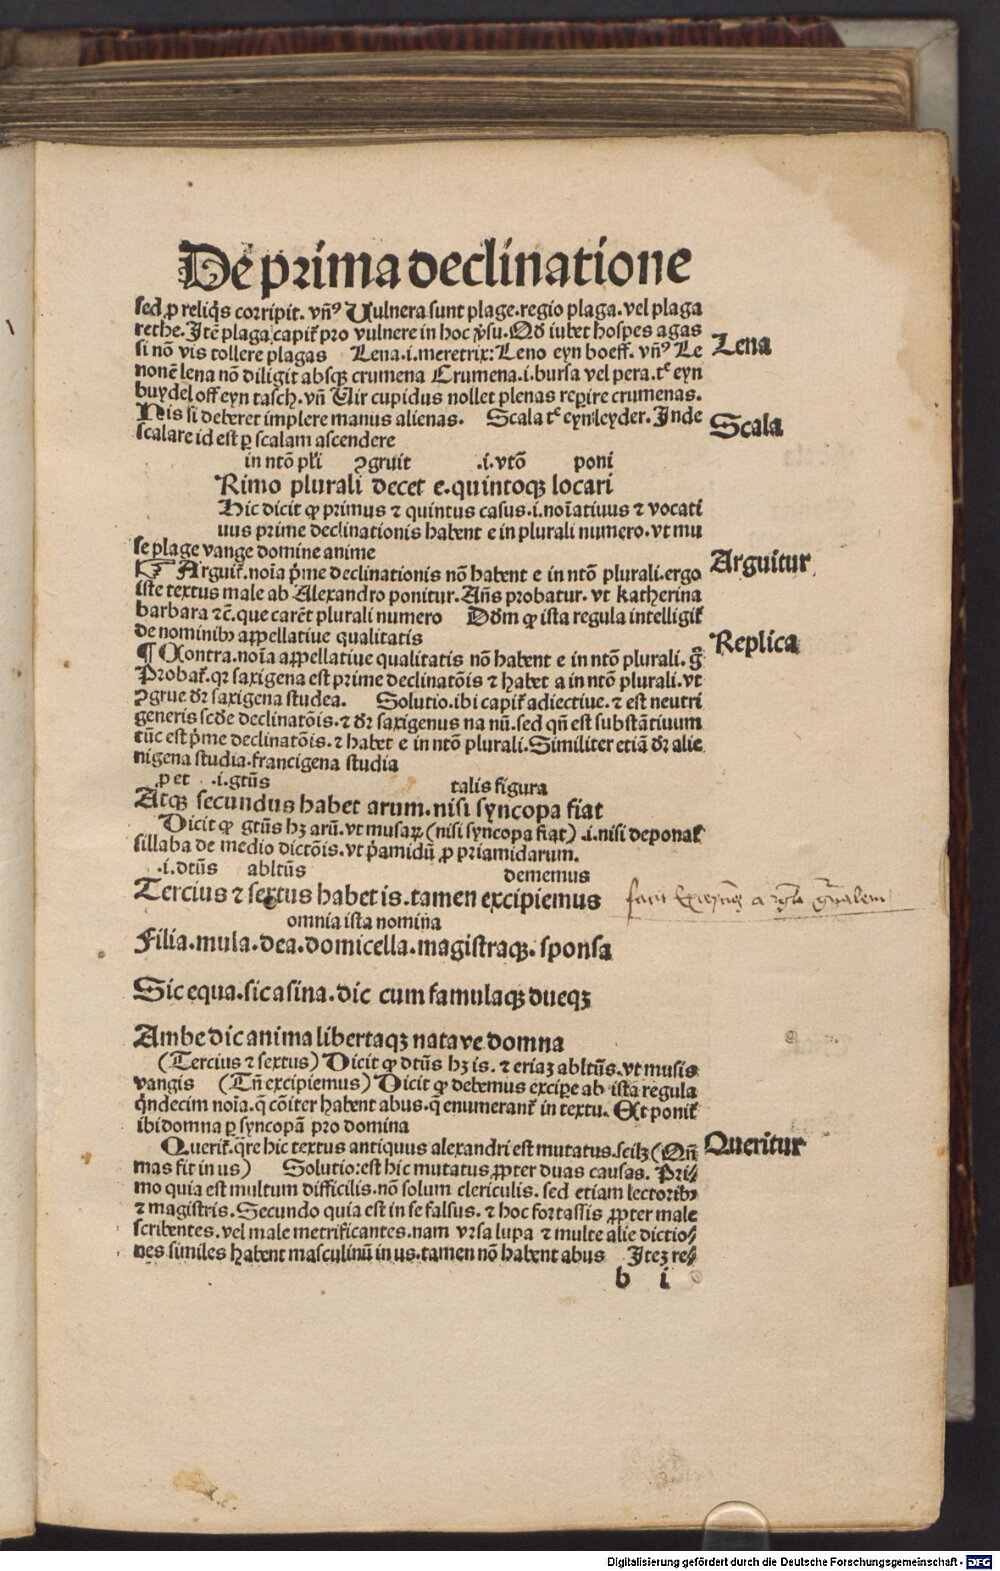 De prima declinatione
sed ꝓ reliq̇s corripit. vn̄ꝰ Vulnera sunt plage. regio plaga. vel plaga
rethe. Itē plaga capit̃ pro vulnere in hoc v̇su. Qḋ iubet hospes agas
si nō vis tollere plagas Lena .i. meretrix: Leno eyn boeff. vn̄ꝰ Le
nonē lena nō diligit absqꝫ crumena Crumena .i. bursa vel pera. tᵉ eyn
buydel off eyn tasch. vn̄ Vir cupidus nollet plenas reꝑire crumenas.
Nis si deberet implere manus alienas. Scala tᵉ eyn leyder. Inde
scalare id est ꝑ scalam ascendere
Lena
Scala
in ntō pl̄i ꝯgruit .i. vtō poni
Rimo plurali decet e. quintoqꝫ locari
Hic dicit ꝙ primus ⁊ quintus casus .i. noīatiuus ⁊ vocati
uus prime declinationis habent e in plurali numero. vt mu
se plage vange domine anime
Arguit̃. noīa p̄me declinationis nō habent e in ntō plurali. ergo
iste textus male ab Alexandro ponitur. An̄s probatur. vt katherina
barbara ⁊c̄. que carēt plurali numero Dōm ꝙ ista regula intelligit̃
de nominibꝰ appellatiue qualitatis
Arguitur
¶ Contra. noīa appellatiue qualitatis nō habent e in ntō plurali. g̃
Probat̃. qꝛ saxigena est prime declinatōis ⁊ habet a in ntō plurali. vt
ꝯgrue dr̄ saxigena studea. Solutio. ibi capit̃ adiectiue. ⁊ est neutri
generis scḋe declinatōis. ⁊ dr̄ saxigenus na nū. sed qn̄ est substātiuum
tūc est p̄me declinatōis. ⁊ habet e in ntō plurali. Similiter etiā dr̄ alie
nigena studia. francigena studia
Replica
p et .i. gtūs talis figura
Atqꝫ secundus habet arum. nisi syncopa fiat
Dicit ꝙ gtūs hꝫ arū. vt musaꝝ (nisi syncopa fiat) .i. nisi deponat̃
sillaba de medio dictōis. vt p̄amidū ꝓ priamidarum.
.i. dtūs abltūs dememus
Tercius ⁊ sextus habet is. tamen excipiemus
omnia ista nomina
Filia. mula. dea. domicella. magistraqꝫ. sponsa
Sic equa. sic asina. dic cum famulaqꝫ dueqꝫ
Ambe dic anima libertaqꝫ nata ve domna
(Tercius ⁊ sextus) Dicit ꝙ dtūs hꝫ is. ⁊ eriaꝫ abltūs. vt musis
vangis (Tn̄ excipiemus) Dicit ꝙ debemus exciꝑe ab ista regula
q̇ndecim noīa. q̄ cōiter habent abus. q̄ enumerant̃ in textu. Et ponit̃
ibi domna ꝑ syncopā pro domina
Querit̃. q̄re hic textus antiquus alexandri est mutatus. scilꝫ (Qn̄
mas fit in us) Solutio: est hic mutatus ꝓpter duas causas. Pri⸗
mo quia est multum difficilis. nō solum clericulis. sed etiam lectoribꝰ
⁊ magistris. Secundo quia est in se falsus. ⁊ hoc fortassis ꝓpter male
scribentes. vel male metrificantes. nam vrsa lupa ⁊ multe alie dictio⸗
nes similes habent masculinū in us. tamen nō habent abus Iteꝫ re⸗
Queritur
b i
Digitalisierung gefördert durch die Deutsche Forschungsgemeinschaft - DFG